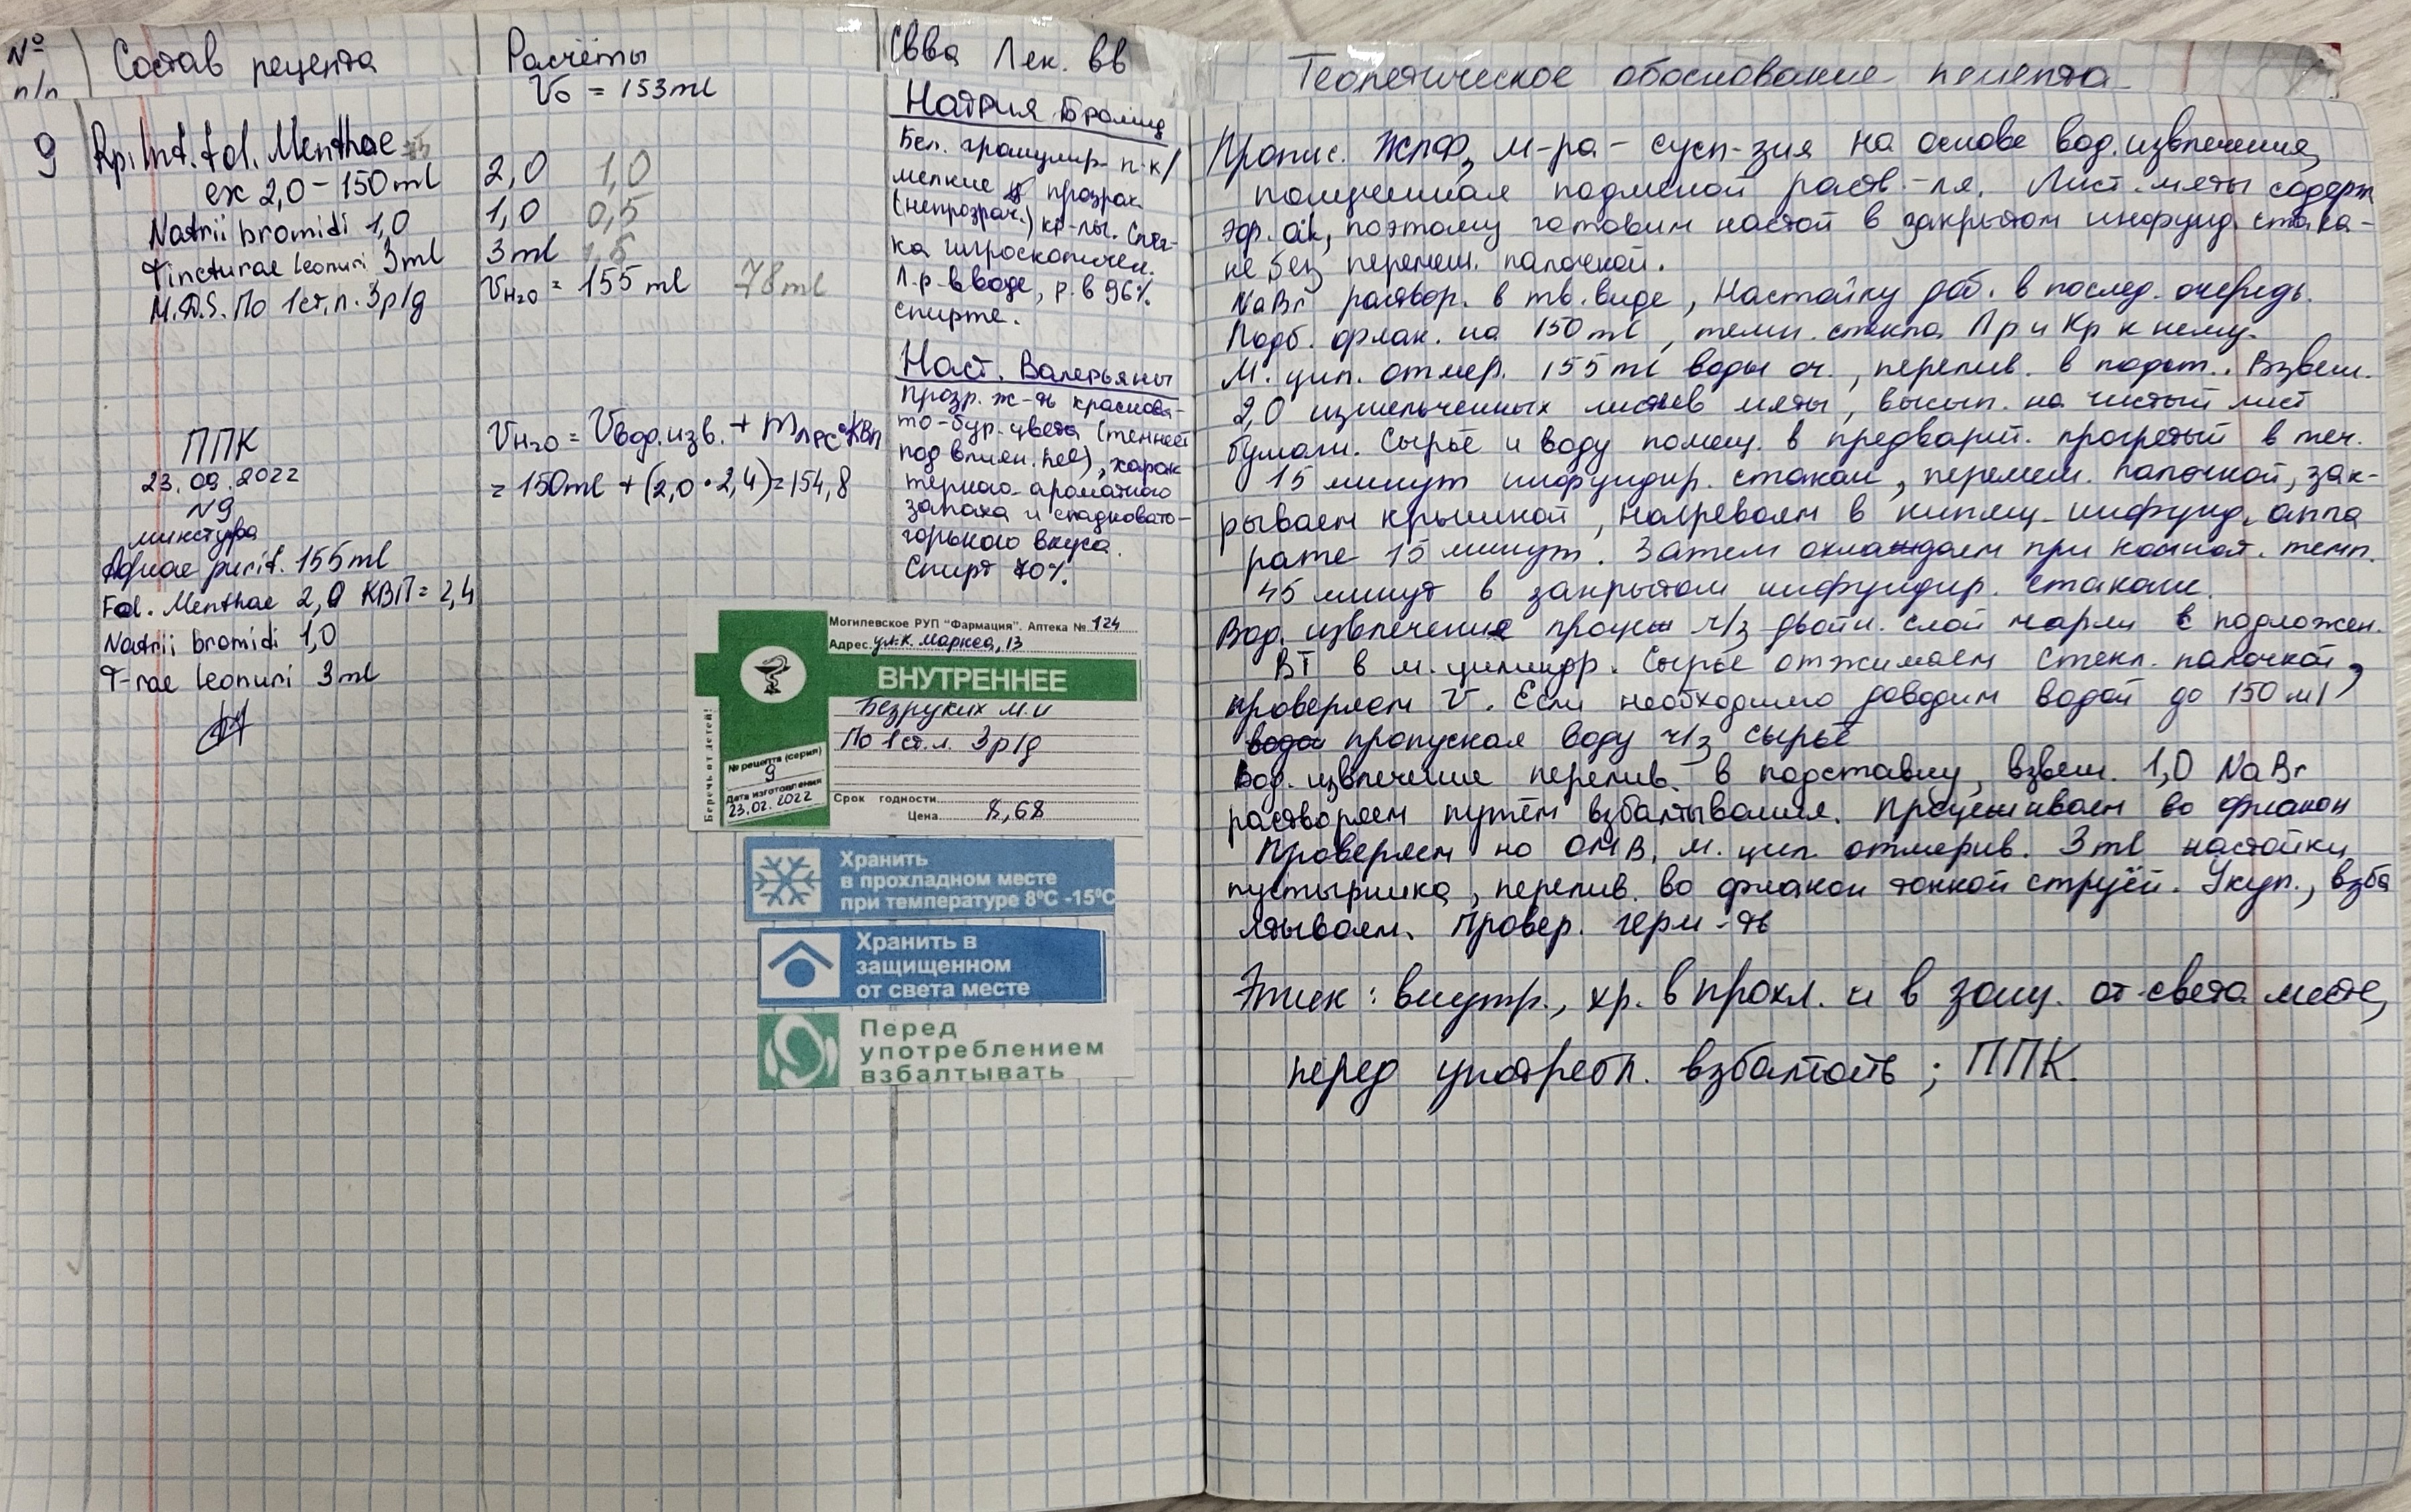 № п/п
Состав рецепта
Расчёты
Свва Лек. вв
Теоретическое обоснование рецепта
9
Rp: Inf. fol. Menthae
ex 2,0 – 150 ml
Natrii bromidi 1,0
Tincturae leonuri 3ml
M.D.S. По 1 ст.л. 3р/д
ППК
23.09.2022
N9
микстура
Aquae purif. 155 ml
Fol. Menthae 2,0 КВП = 2,4
Natrii bromidi 1,0
T-rae leonuri 3 ml
V₀ = 153 ml
2,0 1,0
1,0 0,5
3 ml 1,5
V H₂O = 155 ml 78 ml
V H₂O = V вод.изв. + m лрс • КВп
= 150 ml + (2,0 • 2,4) = 154,8
Натрия Бромид
Бел. гранулир п-к/
мелкие прозрач.
(непрозрач.) кр-лы. Слег-
ка гигроскопичен.
Л.р. в воде, р. в 96%
спирте.
Наст. Валерьяны
Прозр. ж-ть краснова-
то-бур. цвета (темнеет
под влиян. hel), харак
терного ароматного
запаха и сладковато-
горького вкуса.
Спирт 70%.
Могилевское РУП "Фармация". Аптека № 124
Адрес ул. К. Маркса, 13
ВНУТРЕННЕЕ
Безруких М.И
По 1 ст.л. 3р/д
Беречь от детей!
№ рецепта (серия)
9
Дата изготовления
23.02.2022
Срок годности
Цена 8,68
Хранить
в прохладном месте
при температуре 8°С -15°С
Хранить в
защищенном
от света месте
Перед
употреблением
взбалтывать
Пропис. ЖЛФ, м-ра – сусп-зия на основе вод. извлечения,
полученная подменой раств-ля. Лист. мяты содерж
эф. ol, поэтому готовим настой в закрытом инфунд. стака-
не без перемеш. палочкой.
NaBr раствор. в тв. виде, Настойку доб. в послед. очередь.
Подб. флак. на 150 ml, темн. стекла Пр и Кр к нему.
М. цил. отмер. 155 ml воды оч., перелив. в подст.. Взвеш.
2,0 измельченных листьев мяты, высып. на чистый лист
бумаги. Сырьё и воду помещ. в предварит. прогретый в теч.
15 минут инфундир. стакан, перемеш. палочкой, зак-
рываем крышкой, нагреваем в кипящ. инфунд. аппа
рате 15 минут. Затем охлаждаем при комнат. темп.
45 минут в закрытом инфундир. стакане.
Вод. извлечение процен ч/з двойн. слой марли с подложен.
ВТ в м. цилиндр. Сырьё отжимаем стекл. палочкой,
проверяем V. Если необходимо доводим водой до 150 ml,
вода пропуская воду ч/з сырьё
Вод. извлечение перелив. в подставку, взвеш. 1,0 NaBr
растворяем путём взбалтывания. Процеживаем во флакон
Проверяем на ОМВ. М. цил. отмерив. 3 ml настойки
пустырника, перелив. во флакон тонкой струёй. Укуп., взба
лтываем. Провер. герм-ть
Этик: внутр., хр. в прохл. и в защ. от света месте,
перед употребл. взболтать; ППК.